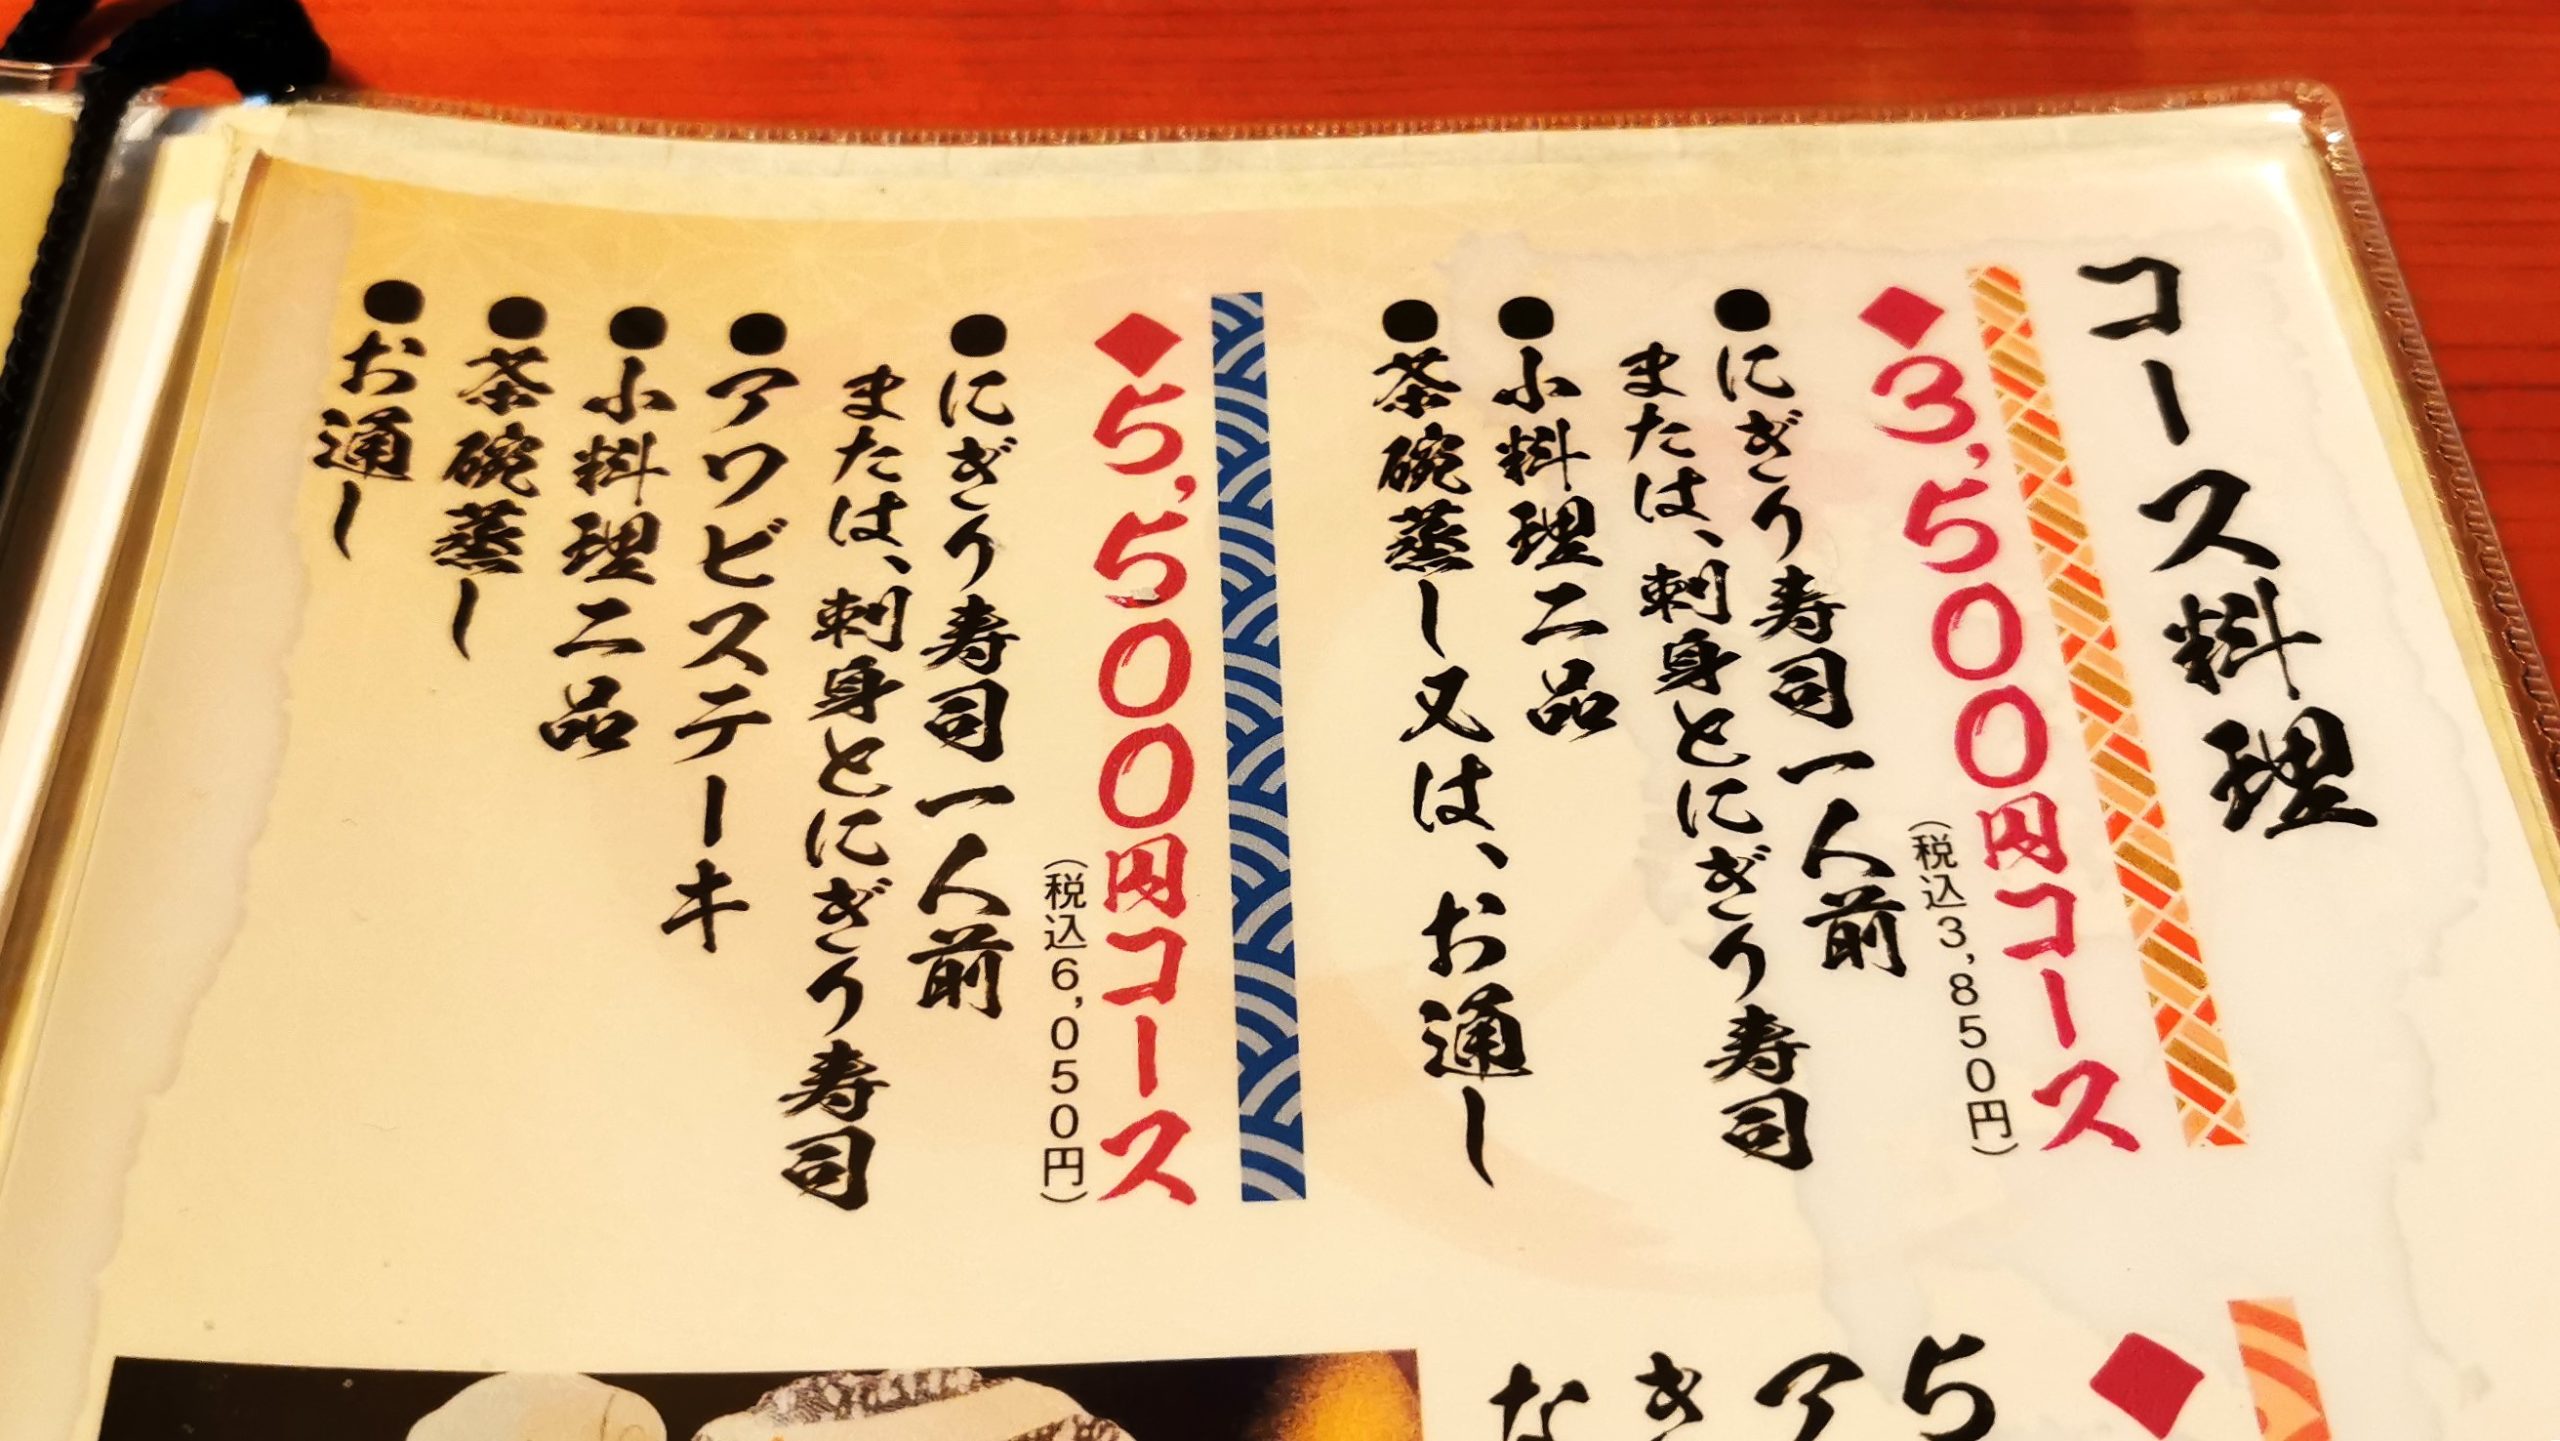 コース料理
◆3,500円コース
(税込3,850円)
●にぎり寿司一人前
または、刺身とにぎり寿司
●小料理二品
●茶碗蒸し又は、お通し
◆5,500円コース
(税込6,050円)
●にぎり寿司一人前
または、刺身とにぎり寿司
●アワビステーキ
●小料理二品
●茶碗蒸し
●お通し
◆
ち
ア
き
な